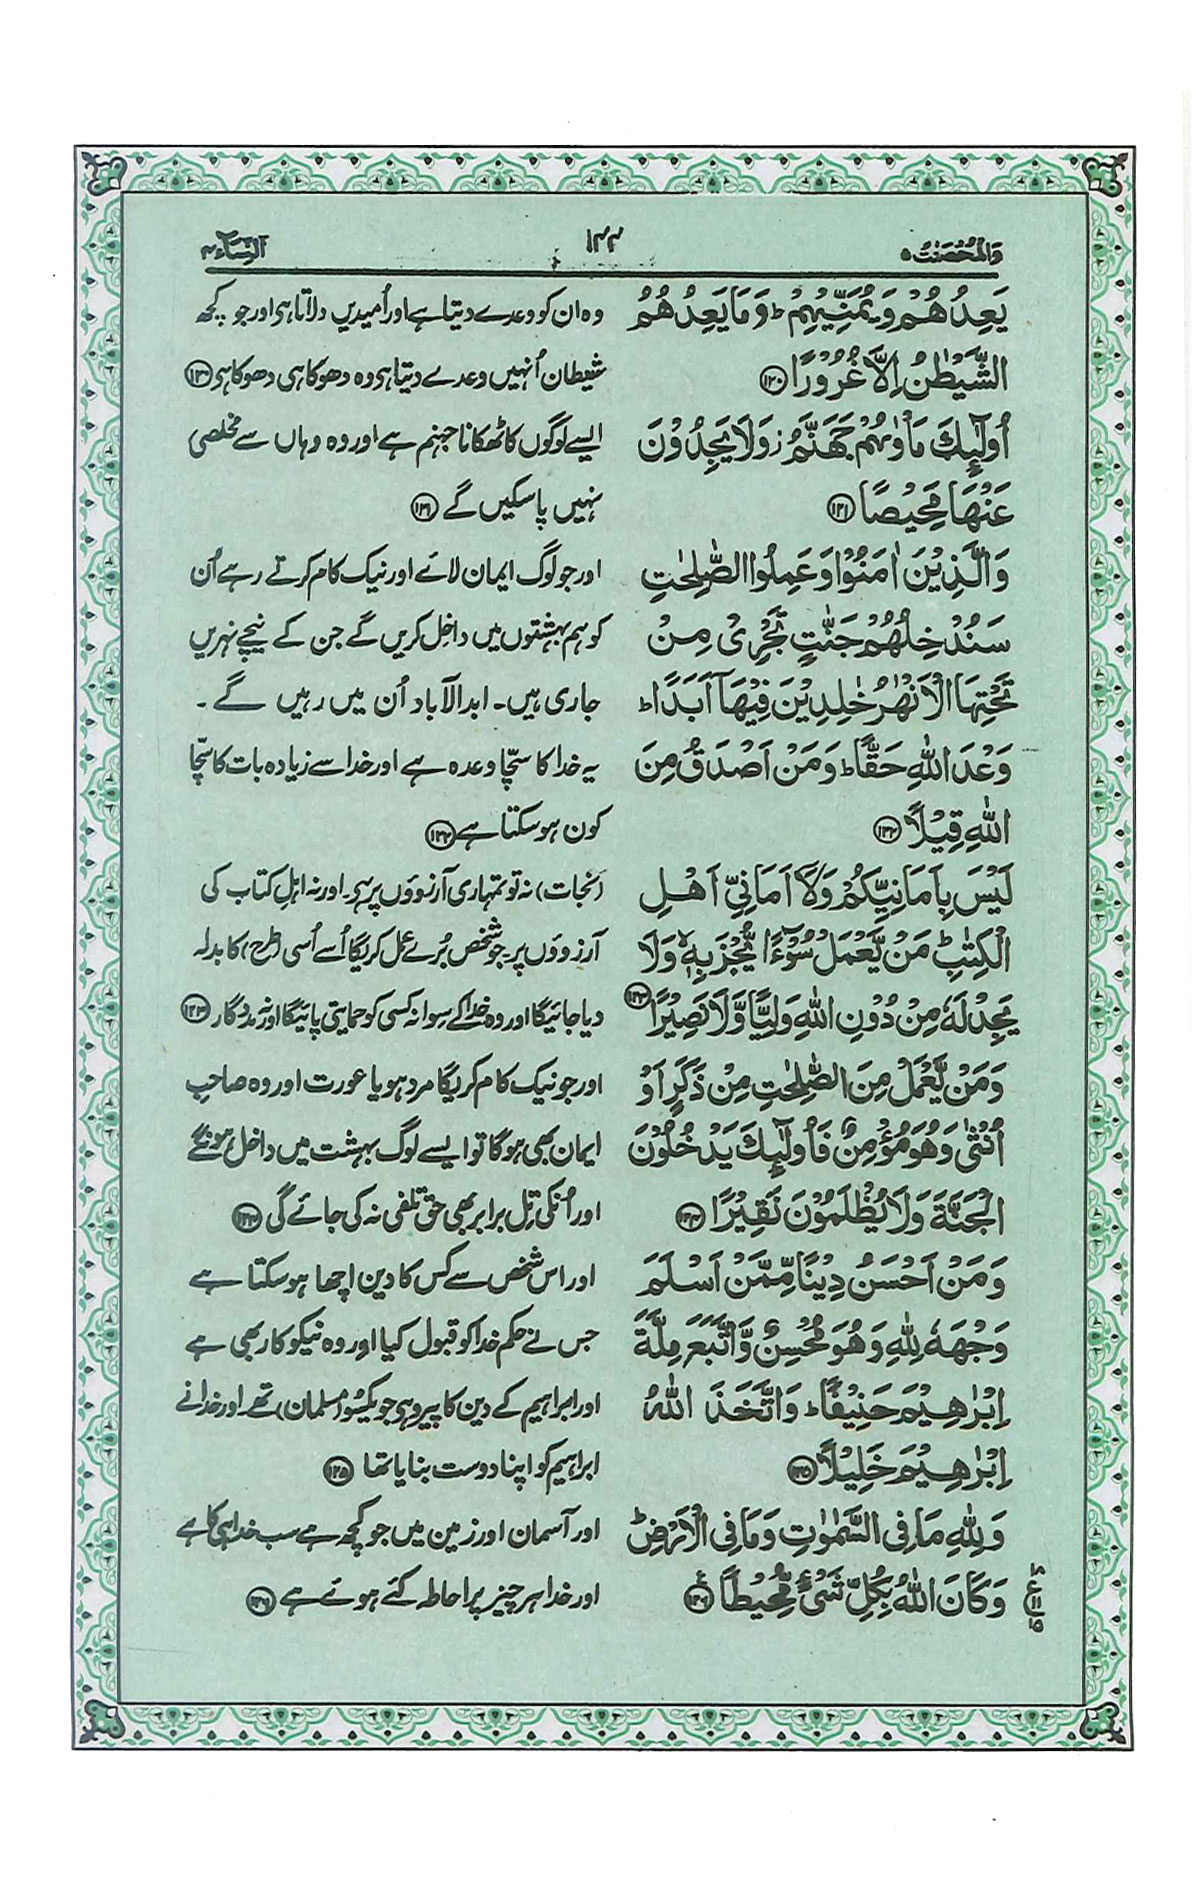 والمحصنت ۵
۱۴۴
النساء ۴
يَعِدُهُمْ وَيُمَنِّيْهِمْ ؕ وَمَا يَعِدُهُمُ
الشَّيْطٰنُ اِلَّا غُرُوْرًا ﴿۱۲۰﴾
اُولٰٓئِكَ مَاْوٰىهُمْ جَهَنَّمُ ز وَلَا يَجِدُوْنَ
عَنْهَا مَحِيْصًا ﴿۱۲۱﴾
وَالَّذِيْنَ اٰمَنُوْا وَعَمِلُوا الصّٰلِحٰتِ
سَنُدْخِلُهُمْ جَنّٰتٍ تَجْرِيْ مِنْ
تَحْتِهَا الْاَنْهٰرُ خٰلِدِيْنَ فِيْهَآ اَبَدًا ؕ
وَعْدَ اللّٰهِ حَقًّا ؕ وَمَنْ اَصْدَقُ مِنَ
اللّٰهِ قِيْلًا ﴿۱۲۲﴾
لَيْسَ بِاَمَانِيِّكُمْ وَلَآ اَمَانِيِّ اَهْلِ
الْكِتٰبِ ؕ مَنْ يَّعْمَلْ سُوْٓءًا يُّجْزَ بِهٖ ۙ وَلَا
يَجِدْ لَهٗ مِنْ دُوْنِ اللّٰهِ وَلِيًّا وَّلَا نَصِيْرًا ﴿۱۲۳﴾
وَمَنْ يَّعْمَلْ مِنَ الصّٰلِحٰتِ مِنْ ذَكَرٍ اَوْ
اُنْثٰى وَهُوَ مُؤْمِنٌ فَاُولٰٓئِكَ يَدْخُلُوْنَ
الْجَنَّةَ وَلَا يُظْلَمُوْنَ نَقِيْرًا ﴿۱۲۴﴾
وَمَنْ اَحْسَنُ دِيْنًا مِّمَّنْ اَسْلَمَ
وَجْهَهٗ لِلّٰهِ وَهُوَ مُحْسِنٌ وَّاتَّبَعَ مِلَّةَ
اِبْرٰهِيْمَ حَنِيْفًا ؕ وَاتَّخَذَ اللّٰهُ
اِبْرٰهِيْمَ خَلِيْلًا ﴿۱۲۵﴾
وَلِلّٰهِ مَا فِي السَّمٰوٰتِ وَمَا فِي الْاَرْضِ ؕ
وَكَانَ اللّٰهُ بِكُلِّ شَيْءٍ مُّحِيْطًا ﴿۱۲۶﴾
وہ ان کو وعدے دیتا ہے اور اُمیدیں دلاتا ہی اور جو کچھ
شیطان اُنہیں وعدے دیتا ہی وہ دھوکا ہی دھوکا ہی ﴿۱۲۰﴾
ایسے لوگوں کا ٹھکانا جہنم ہے اور وہ وہاں سے مخلصی
نہیں پا سکیں گے ﴿۱۲۱﴾
اور جو لوگ ایمان لائے اور نیک کام کرتے رہے اُن
کو ہم بہشتوں میں داخل کریں گے جن کے نیچے نہریں
جاری ہیں۔ ابدالآباد اُن میں رہیں گے۔
یہ خدا کا سچّا وعدہ ہے اور خدا سے زیادہ بات کا سچّا
کون ہو سکتا ہے ﴿۱۲۲﴾
(نجات) نہ تو تمہاری آرزوؤں پر ہی۔ اور نہ اہلِ کتاب کی
آرزوؤں پر۔ جو شخص بُرے عمل کریگا اُسے اُسی (طرح) کا بدلہ
دیا جائیگا اور وہ خدا کے سوا نہ کسی کو حمایتی پائیگا اور نہ مددگار ﴿۱۲۳﴾
اور جو نیک کام کریگا مرد ہو یا عورت اور وہ صاحبِ
ایمان بھی ہوگا تو ایسے لوگ بہشت میں داخل ہونگے
اور اُنکی تِل برابر بھی حق تلفی نہ کی جائے گی ﴿۱۲۴﴾
اور اس شخص سے کس کا دین اچھا ہو سکتا ہے
جس نے حکم خدا کو قبول کیا اور وہ نیکوکار بھی ہے
اور ابراہیم کے دین کا پیرو ہی جو یکسُو (مسلمان) تھے اور خدا نے
ابراہیم کو اپنا دوست بنایا تھا ﴿۱۲۵﴾
اور آسمان اور زمین میں جو کچھ ہے سب خدا ہی کا ہے
اور خدا ہر چیز پر احاطہ کئے ہوئے ہے ﴿۱۲۶﴾